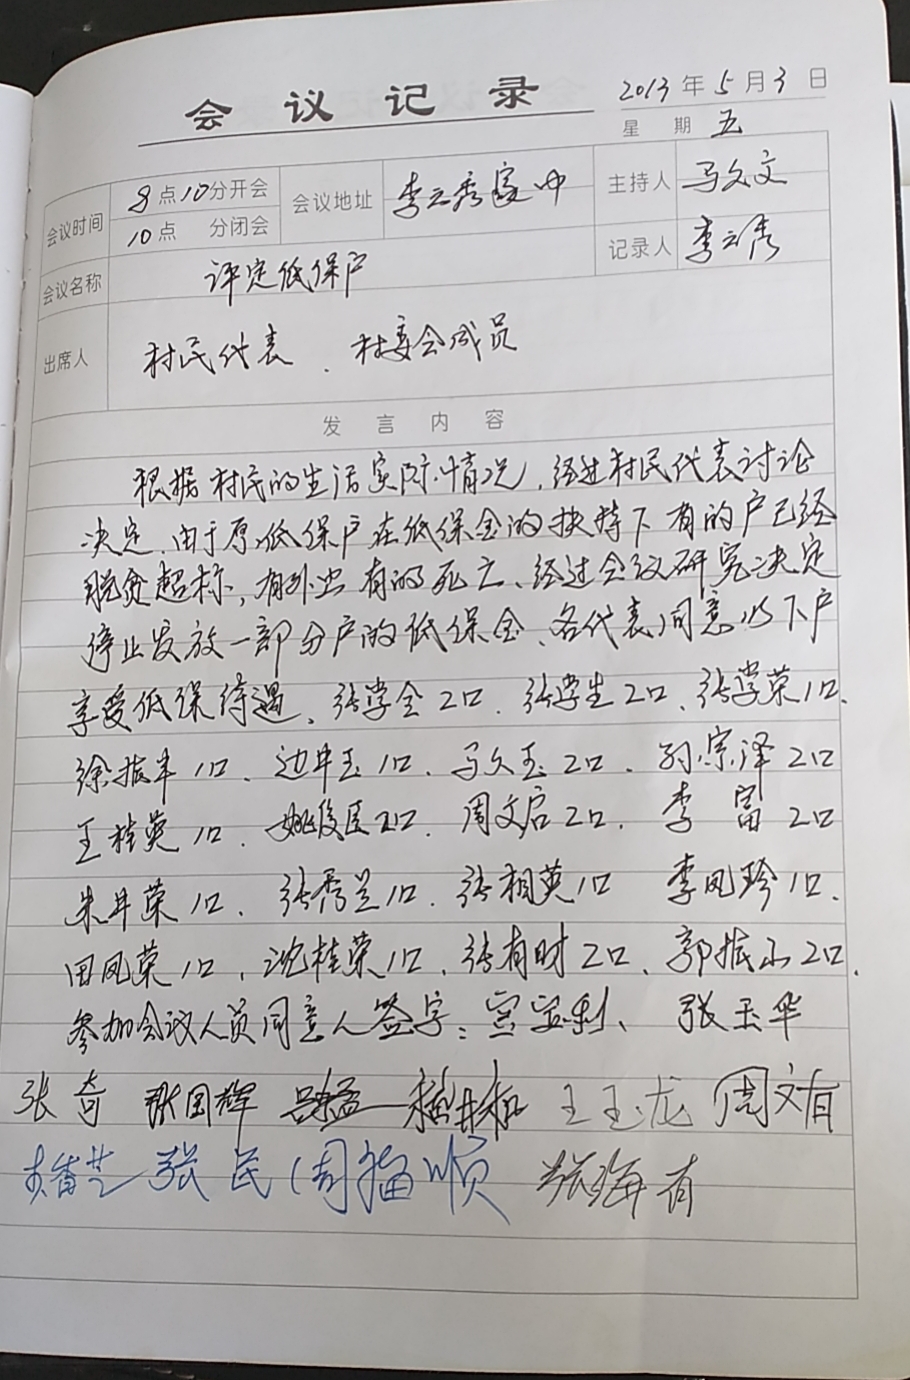 会议记录
2013年5月3日
星期五
会议时间 8点10分开会 会议地址 李云秀家中 主持人 马文文
10点 分闭会 记录人 李云秀
会议名称 评定低保户
出席人 村民代表、村委会成员
发言内容
根据村民的生活实际情况,经过村民代表讨论
决定,由于原低保户在低保金的扶持下有的户已经
脱贫超标,有外出有的死亡、经过会议研究决定
停止发放一部分户的低保金、各代表同意以下户
享受低保待遇、张学会2口、张学生2口、张学荣1口、
徐振丰1口、边井玉1口、马文玉2口、孙宗泽2口
王桂英1口、姚俊臣2口、周文启2口、李富2口
朱井荣1口、张秀兰1口、张相英1口 李凤珍1口、
田凤荣1口、沈桂荣1口、张有时2口、郭振山2口、
参加会议人员同意人签字:宫宝利、张玉华
张奇 张国辉 王玉龙 周文有
张民 周福顺 张海有